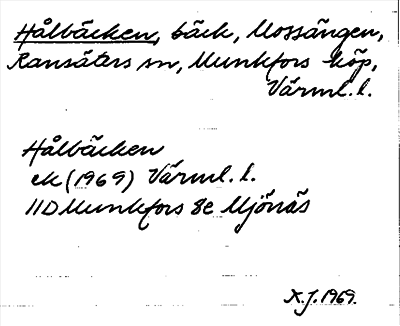 Hålbäcken, bäck, Mossängen,
Ransäters sn, Munkfors köp,
Värml. l.
Hålbäcken
ek (1969) Värml. l.
11D Munkfors 8e Mjönäs
K.J. 1969.